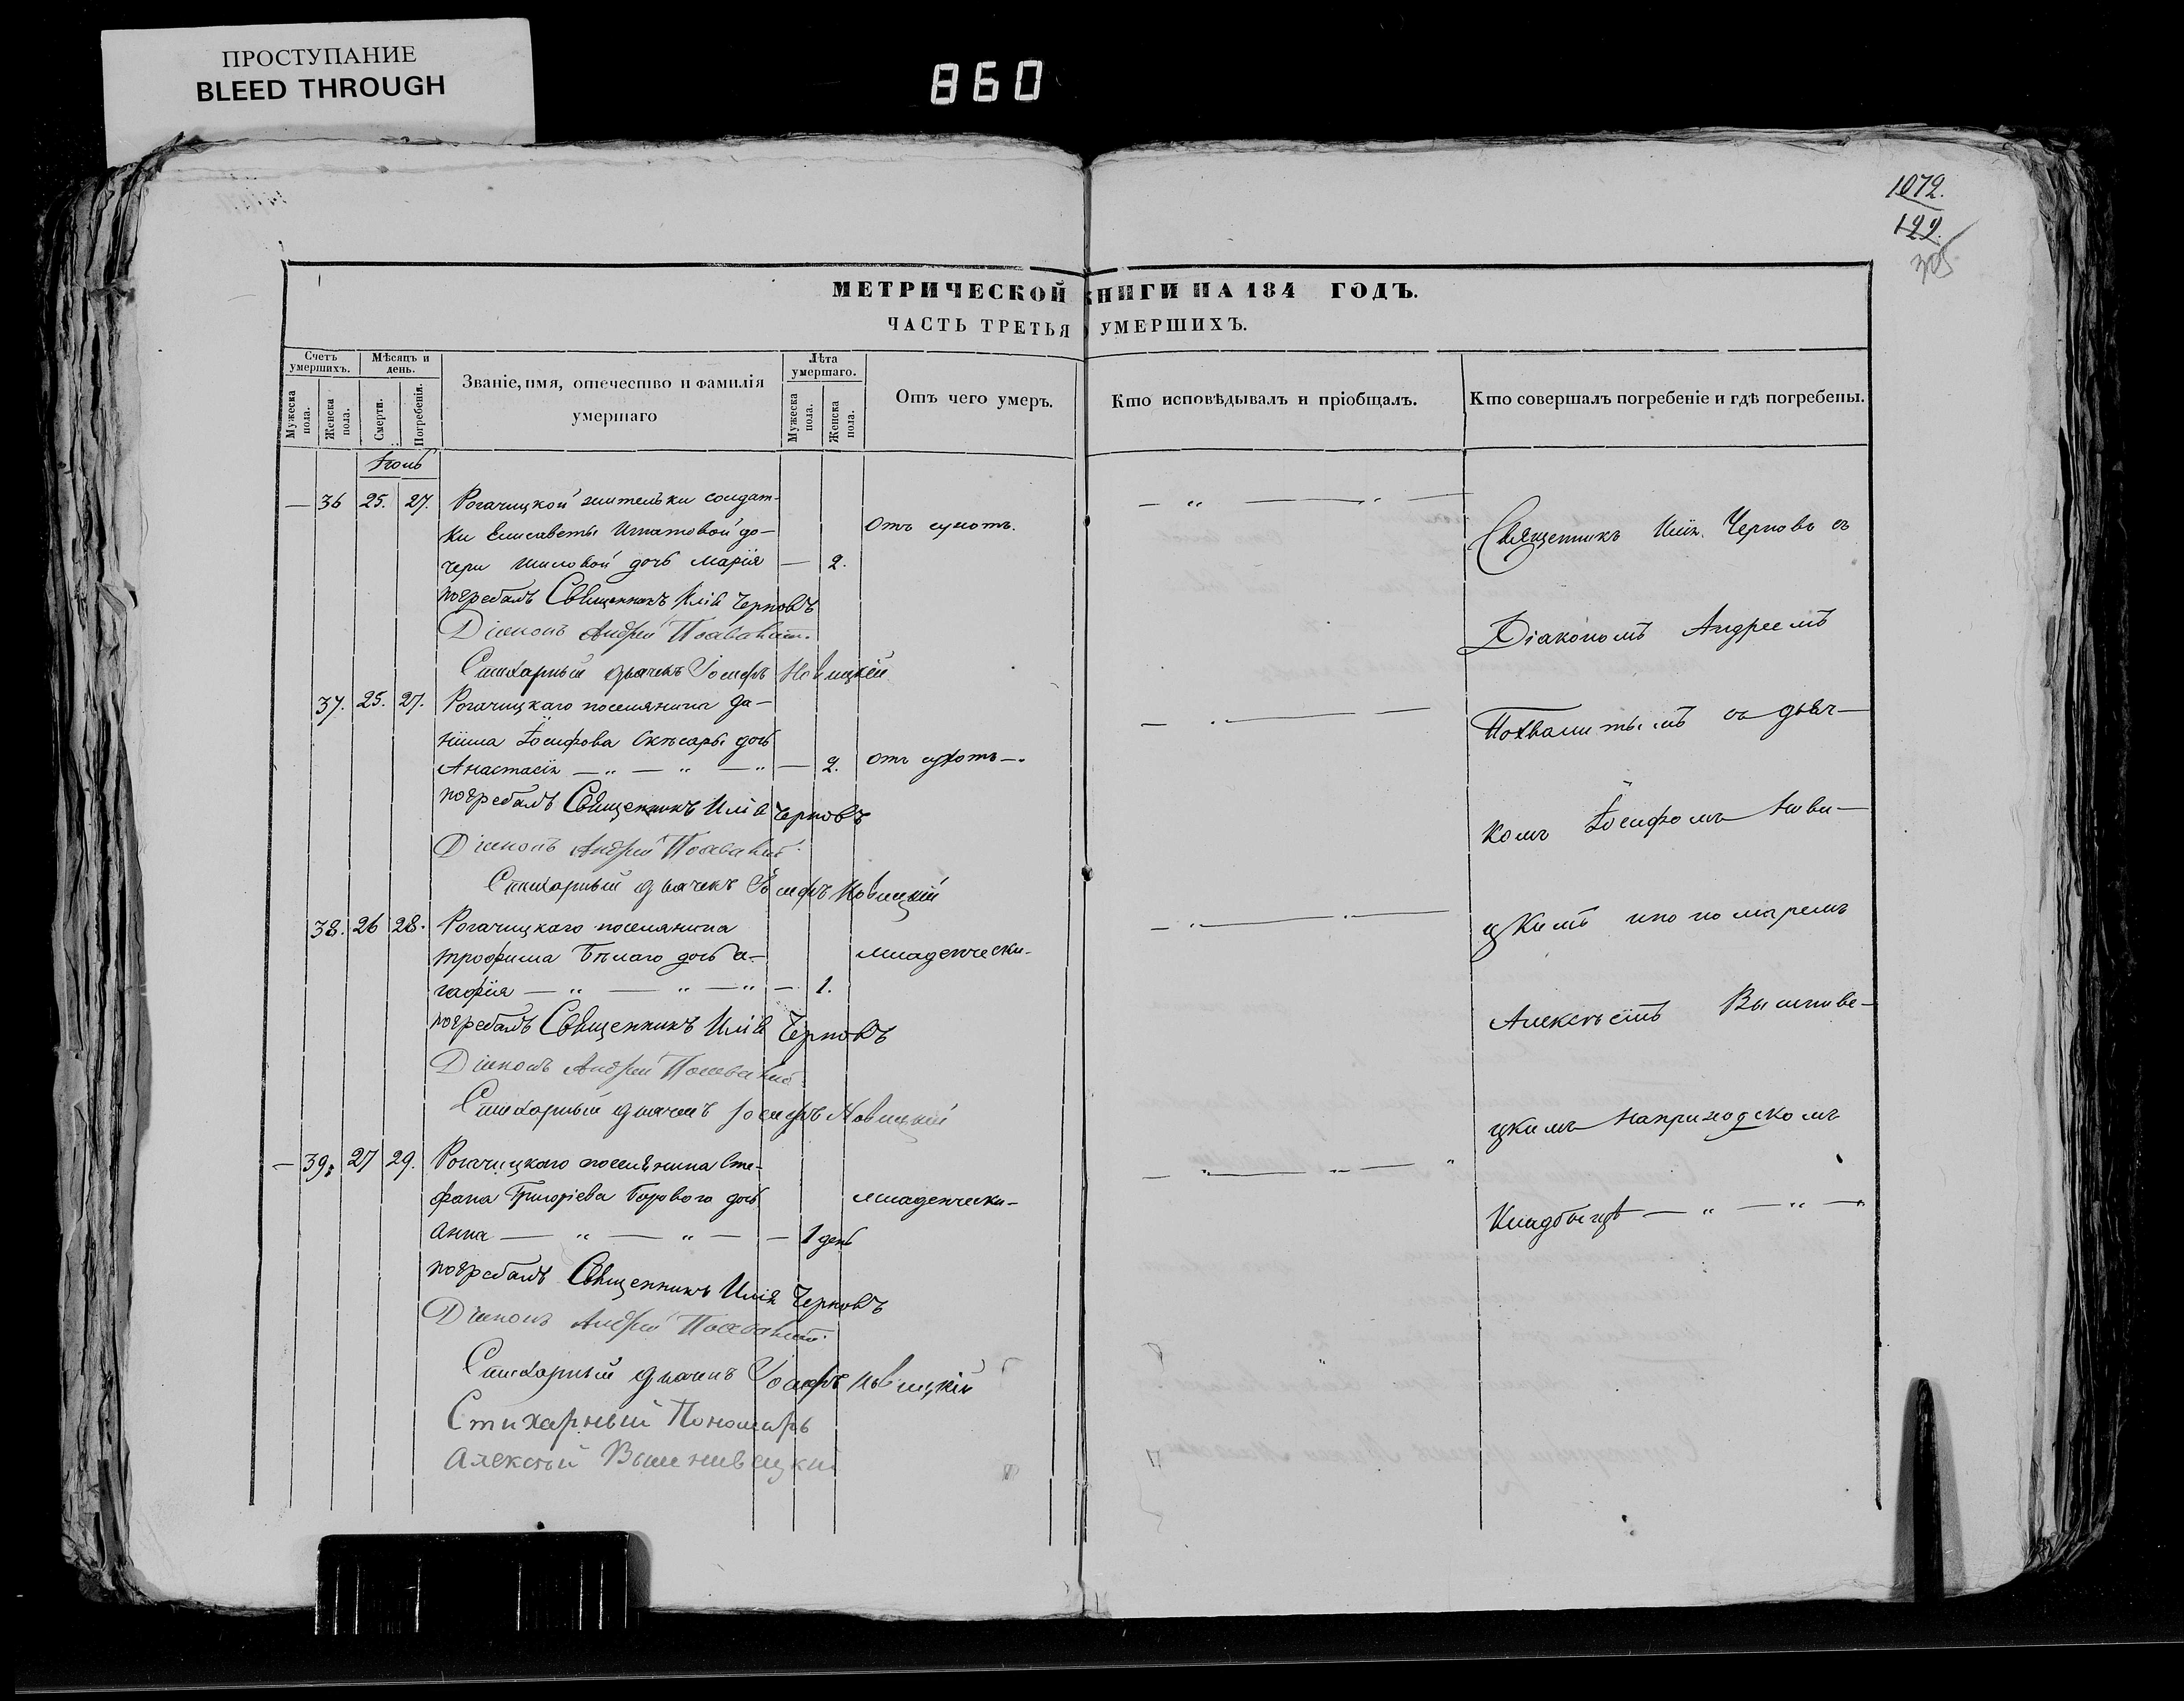 ПРОСТУПАНИЕ
BLEED THROUGH
860
1072.
122.
305
МЕТРИЧЕСКОЙ КНИГИ НА 184 ГОДЪ.
ЧАСТЬ ТРЕТЬЯ УМЕРШИХЪ.
Счетъ умершихъ.
Мужеска пола.
Женска пола.
Мѣсяцъ и день.
Смерти.
Погребенія.
Званіе, имя, отечество и фамилія умершаго
Лѣта умершаго.
Мужеска пола.
Женска пола.
Отъ чего умеръ.
Кто исповѣдывалъ и пріобщалъ.
Кто совершалъ погребеніе и гдѣ погребены.
Іюнь
— 36 25. 27. Рогачицкой жительки солдат-
ки Елисаветы Игнатовой до-
чери Шиловой дочь Марія — 2. Отъ сухотъ.
погребалъ Священникъ Илія Черновъ
Діаконъ Андрей Похвалит.
Стихарный дьячекъ Іосифъ Новицкій
37. 25. 27. Рогачицкаго поселянина Да-
ніила Іосифова дочь
Анастасія — „ — „ — „ — 2. отъ сухотъ —
погребалъ Священникъ Илія Черновъ
Діаконъ Андрей Похвалит.
Стихарный дьячекъ Іосифъ Новицкій
38. 26 28. Рогачицкаго поселянина
Трофима Бѣлаго дочь А- младенчески-
гафія — „ — „ — „ — 1.
погребалъ Священникъ Илія Черновъ
Діаконъ Андрей Похвалит.
Стихарный дьячекъ Іосифъ Новицкій
— 39. 27 29. Рогачицкаго поселянина Сте-
фана Григоріева Борового дочь младенчески-
Анна — „ — „ — — 1 день
погребалъ Священникъ Илія Черновъ
Діаконъ Андрей Похвалит.
Стихарный дьячекъ Іосифъ Новицкій
Стихарный Пономарь
Алексѣй Вышнивецкій
Священникъ Илія Черновъ съ
Діакономъ Андреемъ
Похвалитымъ съ дьяч-
комъ Іосифомъ Нови-
цкимъ и пономаремъ
Алексѣемъ Вышниве-
цкимъ на приходскомъ
Кладбищѣ — „ — „ —